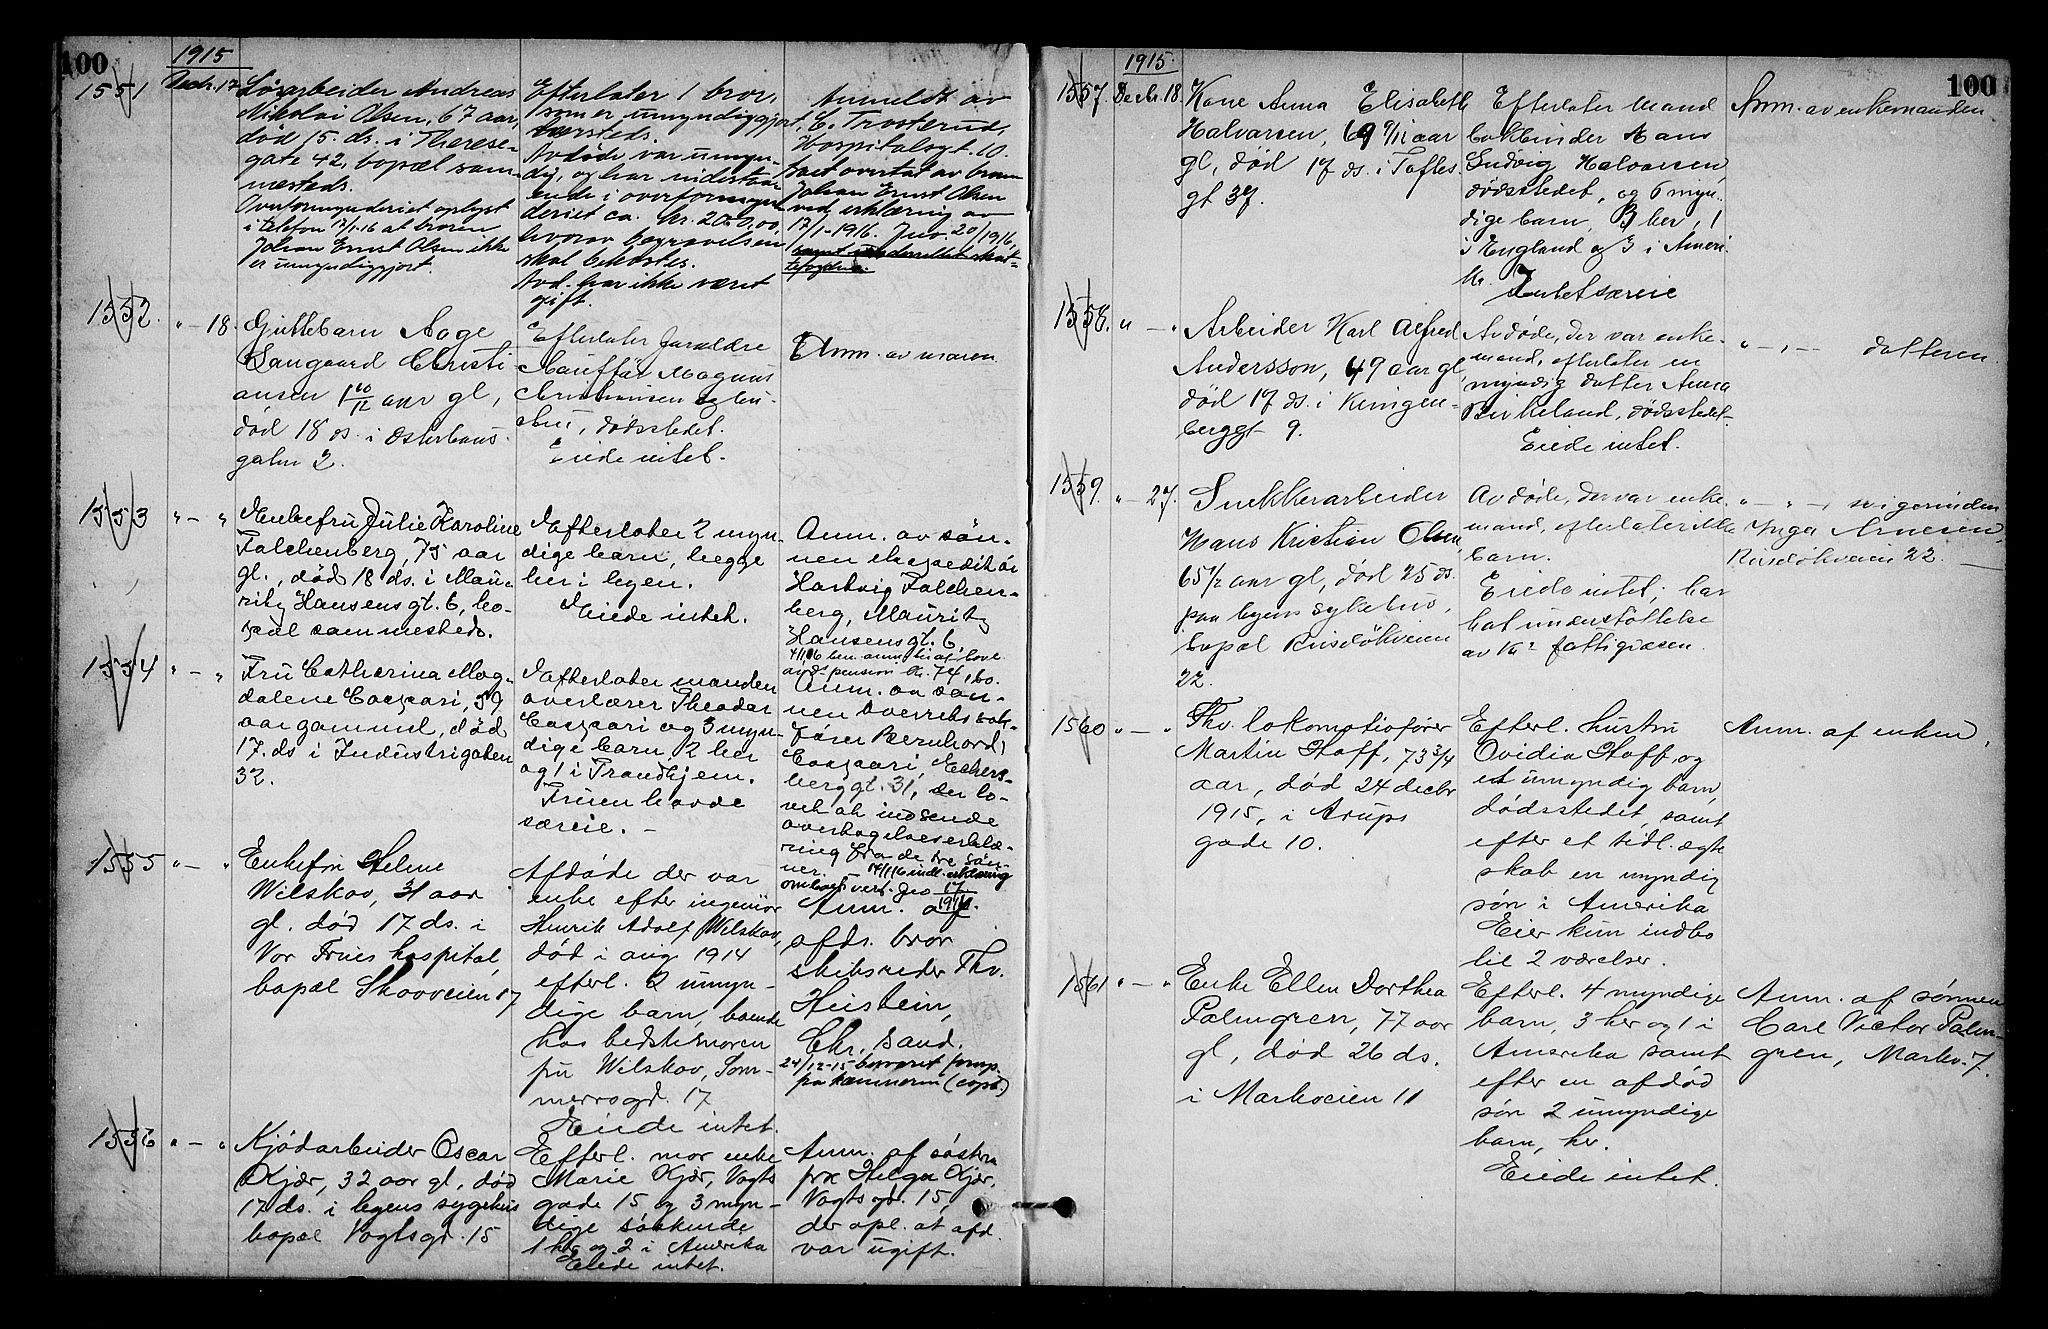 100
1915
1551
Decbr. 17
Løsarbeider Andreas
Nikolai Olsen, 67 aar,
død 15. ds. i Therese-
gate 42, bopæl sam-
mesteds.
Overformynderiet oplyst
i telefon 17/1-16 at broren
Johan Ernst Olsen ikke
er umyndiggjort.
Efterlater 1 bror,
som er umyndiggjort,
Avdøde var umyn-
dig, og har indestaa-
ende i overformyn-
deriet ca. kr. 2000,00,
hvorav begravelsen
skal bekostes.
Avd. har ikke været
gift.
Anmeldt av
C. Trosterud,
Hospitalsgt. 10.
Boet overtat av broren
Johan Ernst Olsen
ved erklæring av
17/1-1916. Jno. 20/1916,
samt underrettet skat-
tefogden.
1552.
" - 18.
Guttebarn Aage
Langaard Christi-
ansen 1 10/12 aar gl,
død 18 ds. i Osterhaus-
gaten 2.
Efterlater forældre
Magnus
Christiansen og hu-
stru, dødsstedet.
Eiede intet.
Anm. av moren
1553
" - "
Enkefru Julie Karoline
Falchenberg, 75 aar
gl., død 18 ds. i Mau-
ritz Hansens gt. 6, bo-
pæl sammesteds.
Efterlater 2 myn-
dige barn, begge
her i byen.
Eiede intet.
Anm. av søn-
nen ekspeditör
Hartvig Falchen-
berg, Mauritz
Hansens gt. 6
pension kr. 74,60.
1554
" - "
Fru Catharina Mag-
dalene Caspari, 59
aar gammel, død
17. ds i Industrigaten
32.
Efterlater manden
overlærer Theodor
Caspari og 3 myn-
dige barn, 2 her
og 1 i Trondhjem.
Fruen havde
særeie. -
Anm. av søn-
nen overrettssak-
fører Bernhard
Caspari, Eckers-
berggt. 31, der lo-
vet at indsende
overtagelseserklæ-
ring fra de tre søn-
ner.
1555
" - "
Enkefru Helene
Wilskov, 31 aar
gl. død 17 ds. i
Vor Frues hospital,
bopæl Skovveien 17
Afdøde der var
enke efter ingeniør
Henrik Adolf Wilskov,
død i aug 1914
efterl. 2 umyn-
dige barn, boende
hos bedstemoren
fru Wilskov, Som-
merrogd. 17
Eiede intet.
Anm. af
afds. bror
skibsreder Thv.
Heistein,
Chr. sand.
24/12-15 besvaret foresp.
fra kæmneren (copi)
1556
" - "
Kjødarbeider Oscar
Kjær, 32 aar gl, død
17 ds. i byens sygehus
bopæl Vogtsgd. 15
Efterl. mor enke
Marie Kjær, Vogts
gade 15 og 3 myn-
dige søskende
1 her og 2 i Amerika
Eiede intet.
Anm. af søstren
frk Helga Kjær,
Vogtsgd. 15,
der opl. at afd.
var ugift.
100
1915.
1557.
Decbr. 18.
Kone Anna Elisabeth
Halvorsen, 69 9/11 aar
gl, død 17 ds. i Toftes-
gt 37.
Efterlater mand
bokbinder Hans
Ludvig Halvorsen,
dødsstedet, og 6 myn-
dige barn, 2 her, 1
i England og 3 i Ameri-
ka.
Intet særeie
Anm. av enkemanden.
1558.
" - "
Arbeider Karl Alfred
Andersson, 49 aar gl,
død 17 ds. i Kongens-
berggt 9.
Avdøde, der var enke-
mand, efterlater en
myndig datter Anna
Birkeland, dødsstedet.
Eiede intet.
" - " - datteren.
1559.
" - 27.
Snekkerarbeider
Hans Kristian Olsen,
65 1/2 aar gl, død 25 ds.
paa byens sykehus,
bopæl Ruseløkveien
22.
Avdøde, der var enke-
mand, efterlater ikke
barn.
Eiede intet, har
hat understøttelse
av Kra fattigvæsen.
" - " - svigerinden
Inga Arnesen,
Ruseløkveien 22.
1560
" - "
Fhv. lokomotivfører
Martin Hoff, 73 3/4
aar, død 24 decbr
1915, i Arups
gade 10.
Efterl. hustru
Ovidia Hoff, og
et umyndig barn,
dødsstedet, samt
efter et tidl. ægte
skab en myndig
søn i Amerika
Eier kun indbo
til 2 værelser.
Anm. af enken.
1561
" - "
Enke Ellen Dorthea
Palmgren, 77 aar
gl, død 26 ds.
i Markveien 11
Efterl. 4 myndige
barn, 3 her og 1 i
Amerika samt
efter en afdød
søn 2 umyndige
barn, her.
Eiede intet.
Anm. af sønnen
Carl Victor Palm-
gren, Markv. 7.